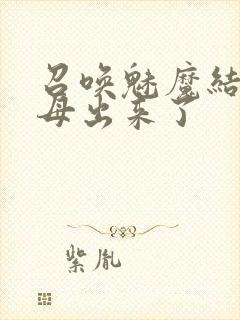 召唤魅魔结
母出来了
紫胤